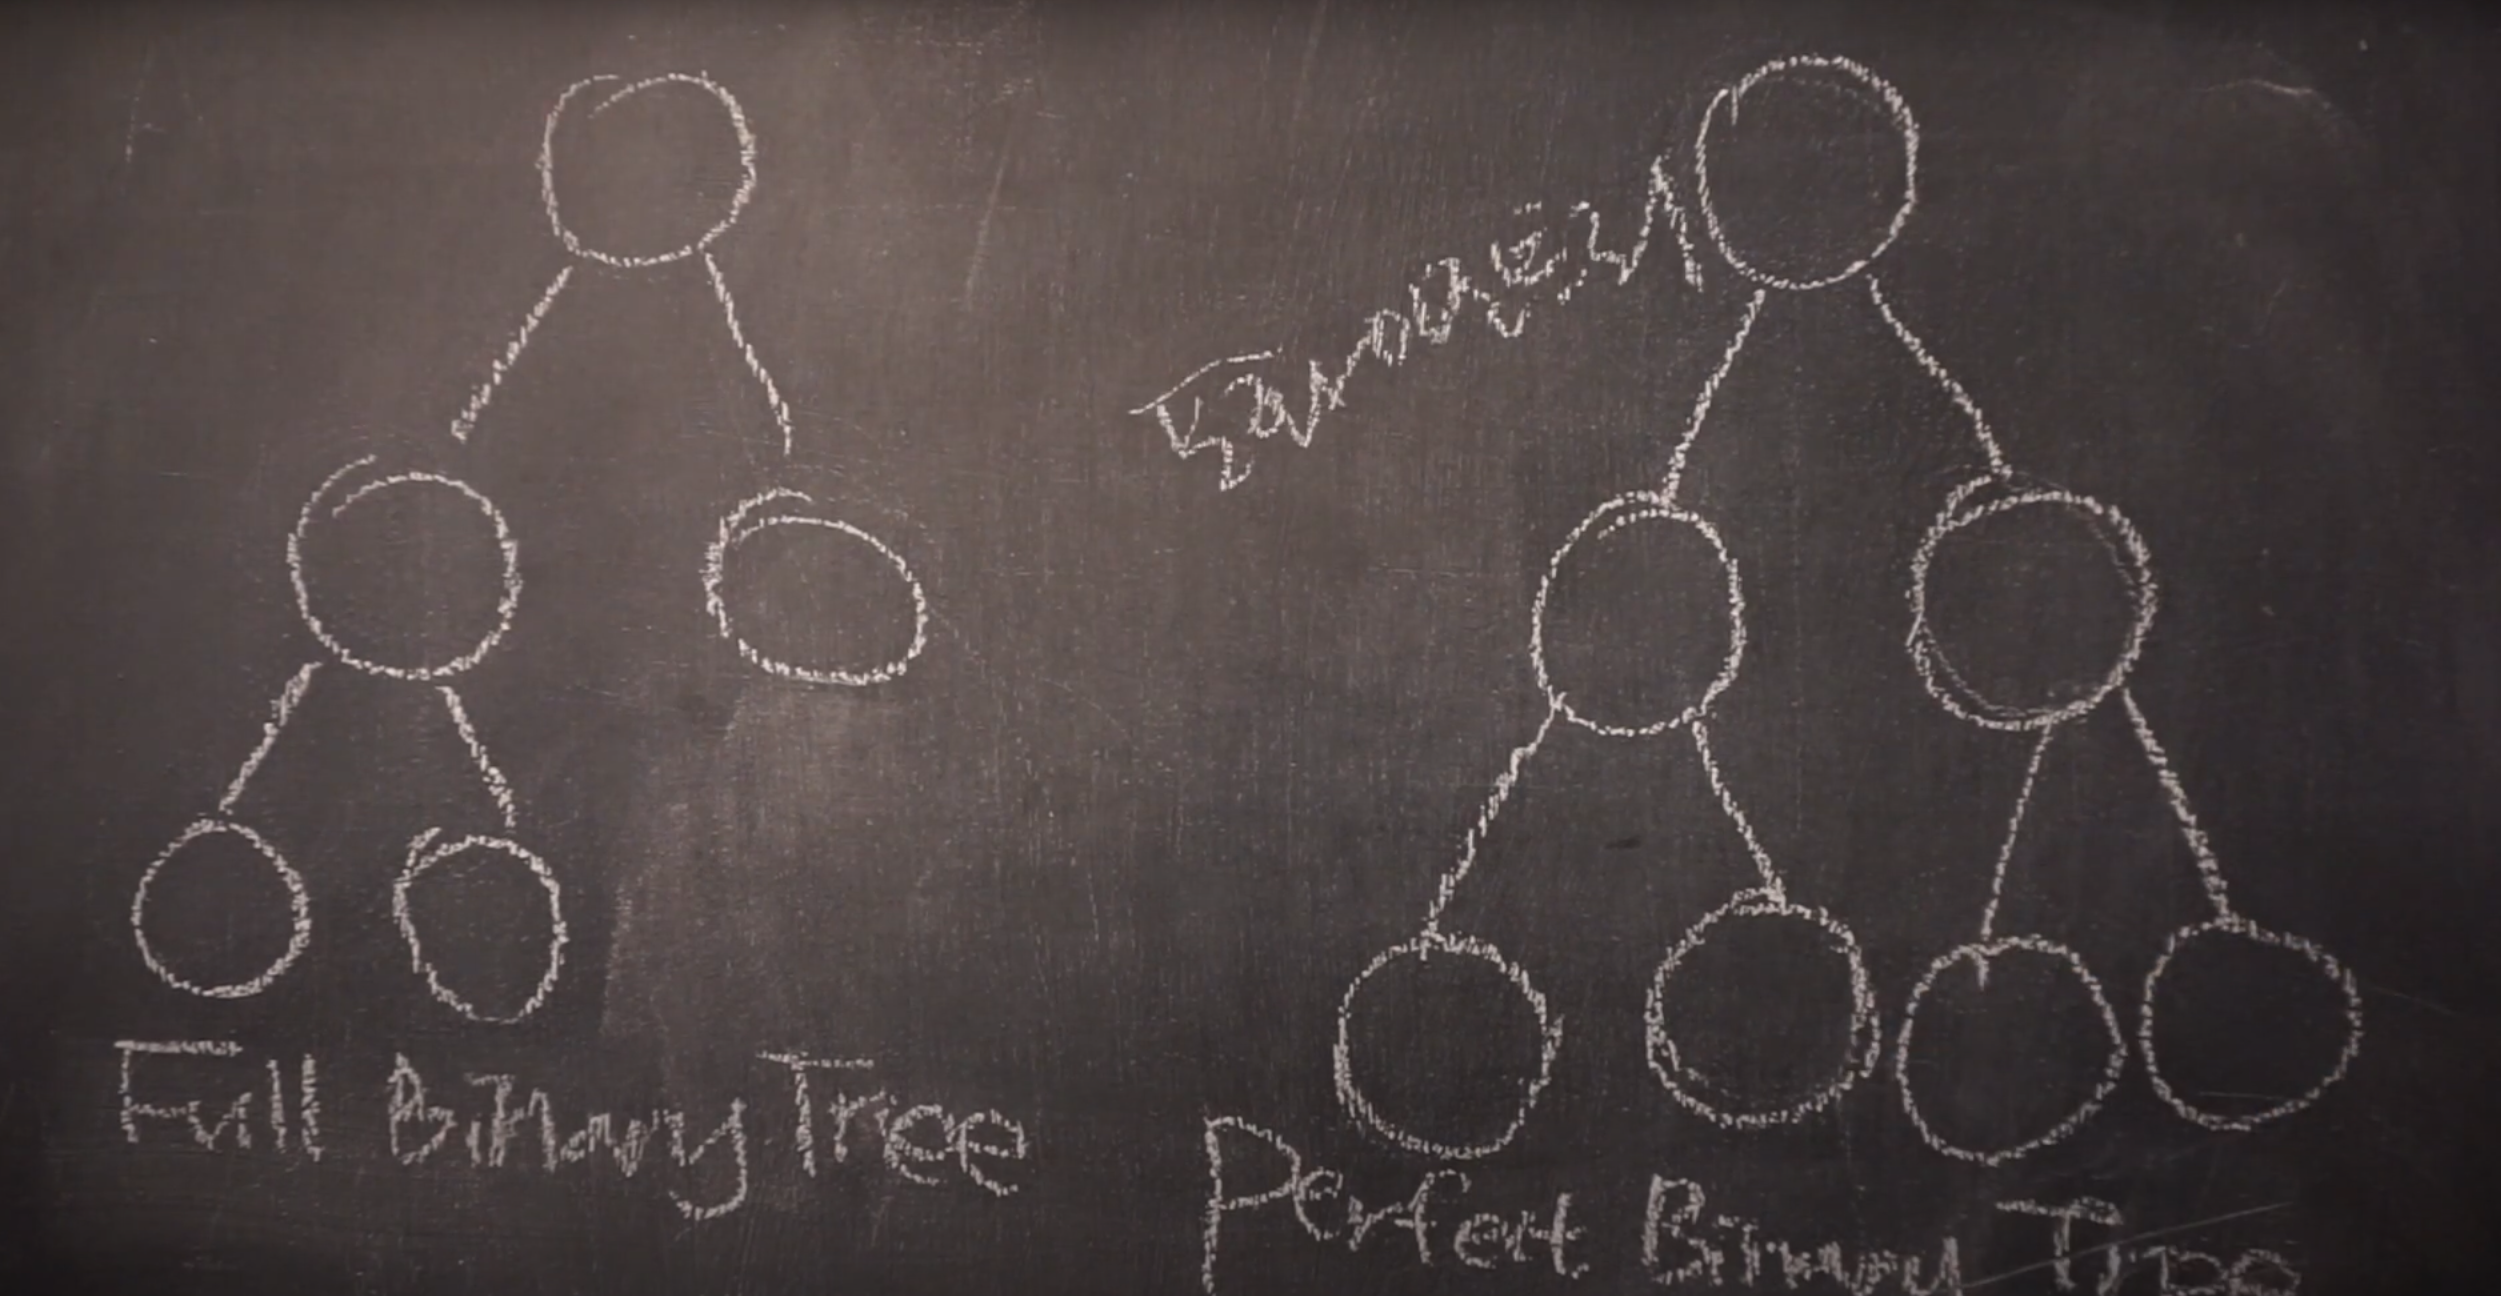 Full Binary Tree
Perfect Binary Tree